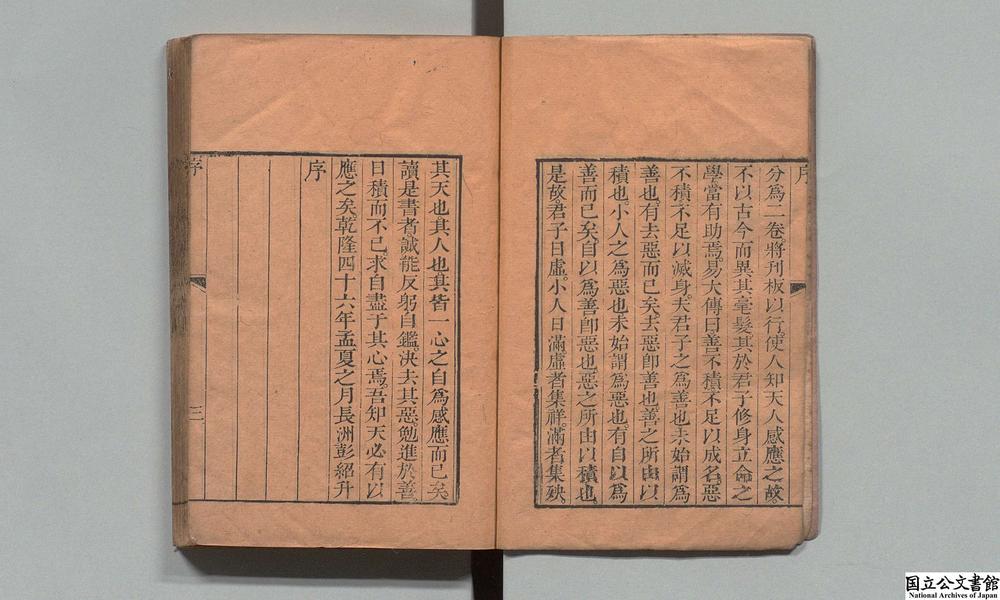 序
分爲二卷將刊板以行使人知天人感應之故
不以古今而異其毫髮其於君子修身立命之
學當有助焉易大傳曰善不積不足以成名惡
不積不足以滅身夫君子之爲善也未始謂爲
善也有去惡而已矣去惡卽善也善之所由以
積也小人之爲惡也未始謂爲惡也有自以爲
善而已矣自以爲善卽惡也惡之所由以積也
是故君子日虛小人日滿虛者集祥滿者集殃
其天也其人也其皆一心之自爲感應而已矣
讀是書者誠能反躬自鑑決去其惡勉進於善
日積而不已求自盡于其心焉吾知天必有以
應之矣乾隆四十六年孟夏之月長洲彭紹升
序
序
三
国立公文書館
National Archives of Japan